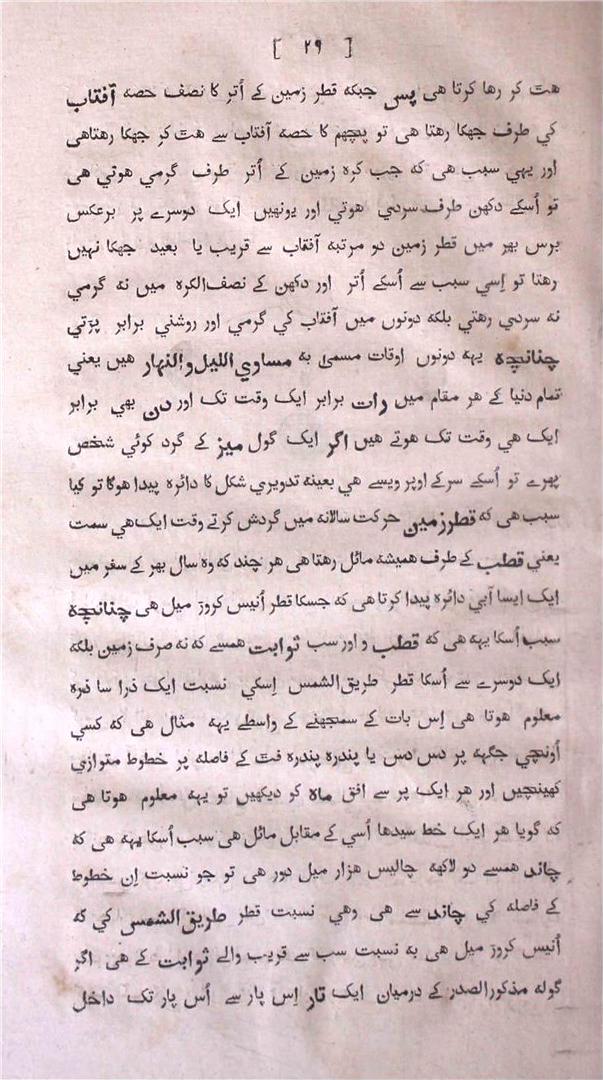 [ ۲۹ ]
هٹ کر رها کرتا هی پس جبکه قطر زمین کے اُتر کا نصف حصه آفتاب
کي طرف جهکا رهتا هی تو پچهم کا حصه آفتاب سے هٹ کر جهکا رهتاهی
اور یهي سبب هی که جب کره زمین کے اُتر طرف گرمي هوتي هی
تو اُسکے دکهن طرف سردي هوتي اور یونهیں ایک دوسرے پر برعکس
برس بهر میں قطر زمین دو مرتبه آفتاب سے قریب یا بعید جهکا نهیں
رهتا تو اِسي سبب سے اُسکے اُتر اور دکهن کے نصف‌الکره میں نه گرمي
نه سردي رهتي بلکه دونوں میں آفتاب کي گرمي اور روشني برابر پڑتي
چنانچه یهه دونوں اوقات مسمیٰ به مساوي اللیل والنهار هیں یعني
تمام دنیا کے هر مقام میں رات برابر ایک وقت تک اور دن بهي برابر
ایک هي وقت تک هوتے هیں اگر ایک گول میز کے گرد کوئي شخص
پهرے تو اُسکے سرکے اوپر ویسے هي بعینه تدویري شکل کا دائره پیدا هوگا تو کیا
سبب هی که قطرزمین حرکت سالانه میں گردش کرتے وقت ایک هي سمت
یعني قطب کے طرف همیشه مائل رهتا هی هر چند که وه سال بهر کے سفر میں
ایک ایسا آبي دائره پیدا کرتا هی که جسکا قطر اُنیس کروڑ میل هی چنانچه
سبب اُسکا یهه هی که قطب و اور سب ثوابت همسے که نه صرف زمین بلکه
ایک دوسرے سے اُسکا قطر طریق‌الشمس اِسکي نسبت ایک ذرا سا ذره
معلوم هوتا هی اِس بات کے سمجهنے کے واسطے یهه مثال هی که کسي
اُونچي جگهه پر دس دس یا پندره پندره فٹ کے فاصله پر خطوط متوازي
کهینچیں اور هر ایک پر سے افق ماه کو دیکهیں تو یهه معلوم هوتا هی
که گویا هر ایک خط سیدها اُسي کے مقابل مائل هی سبب اُسکا یهه هی که
چاند همسے دو لاکهه چالیس هزار میل دور هی تو جو نسبت اِن خطوط
کے فاصله کي چاند سے هی وهي نسبت قطر طریق الشمس کي که
اُنیس کروڑ میل هی به نسبت سب سے قریب والے ثوابت کے هی اگر
گوله مذکورالصدر کے درمیان ایک تار اِس پار سے اُس پار تک داخل